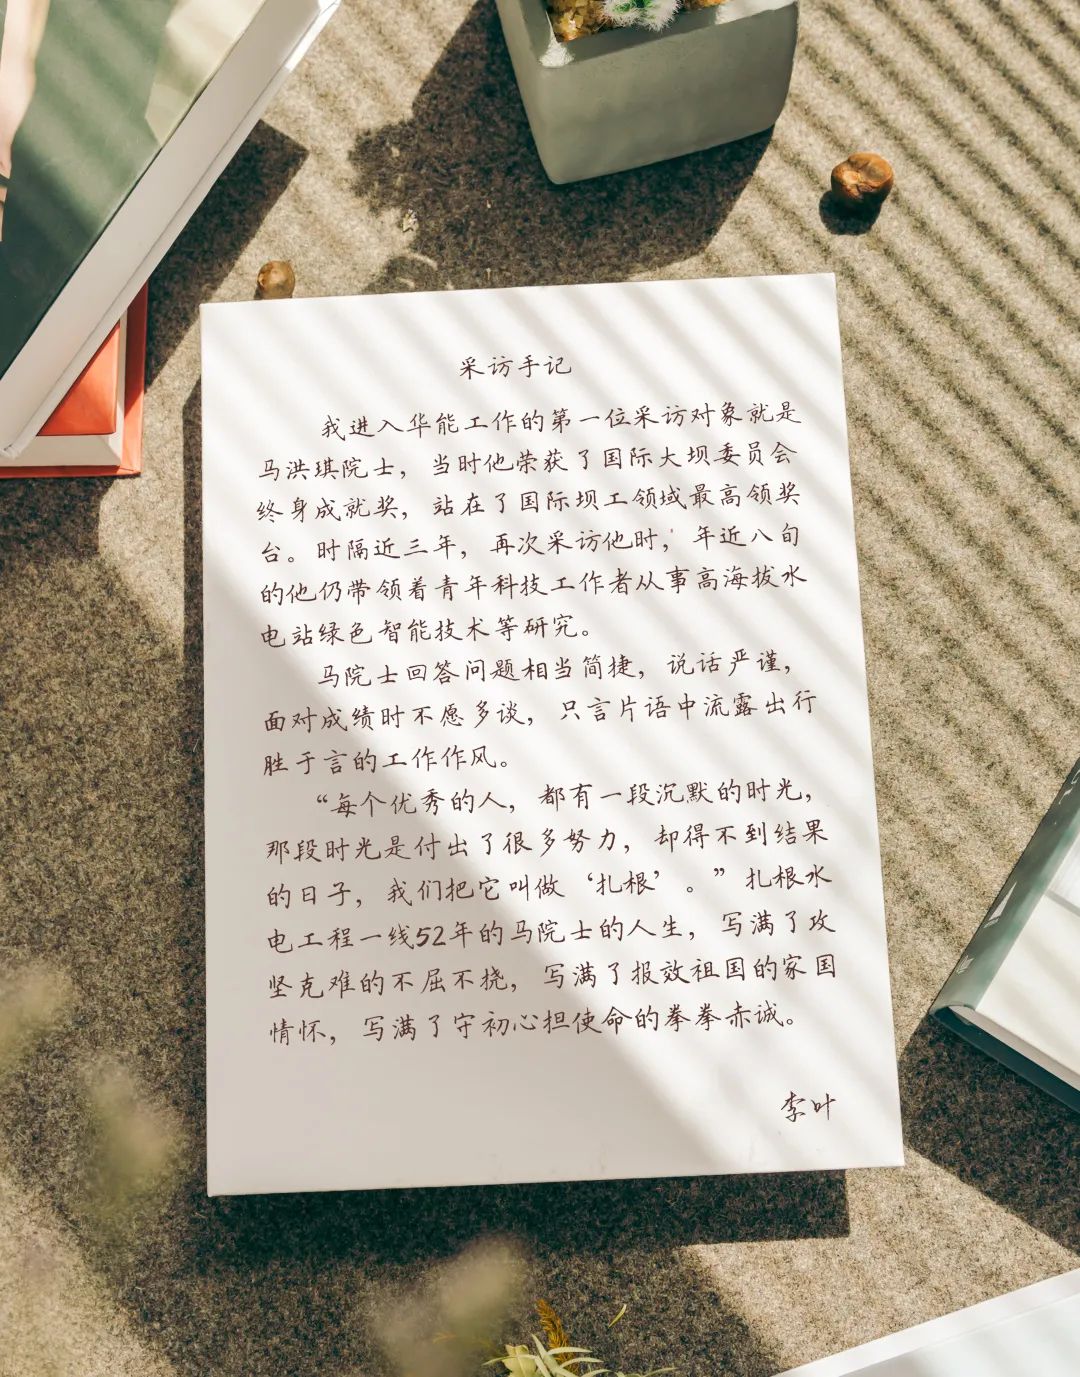 采访手记
我进入华能工作的第一位采访对象就是
马洪琪院士，当时他荣获了国际大坝委员会
终身成就奖，站在了国际坝工领域最高领奖
台。时隔近三年，再次采访他时，年近八旬
的他仍带领着青年科技工作者从事高海拔水
电站绿色智能技术等研究。
马院士回答问题相当简捷，说话严谨，
面对成绩时不愿多谈，只言片语中流露出行
胜于言的工作作风。
“每个优秀的人，都有一段沉默的时光，
那段时光是付出了很多努力，却得不到结果
的日子，我们把它叫做‘扎根’。”扎根水
电工程一线52年的马院士的人生，写满了攻
坚克难的不屈不挠，写满了报效祖国的家国
情怀，写满了守初心担使命的拳拳赤诚。
李叶